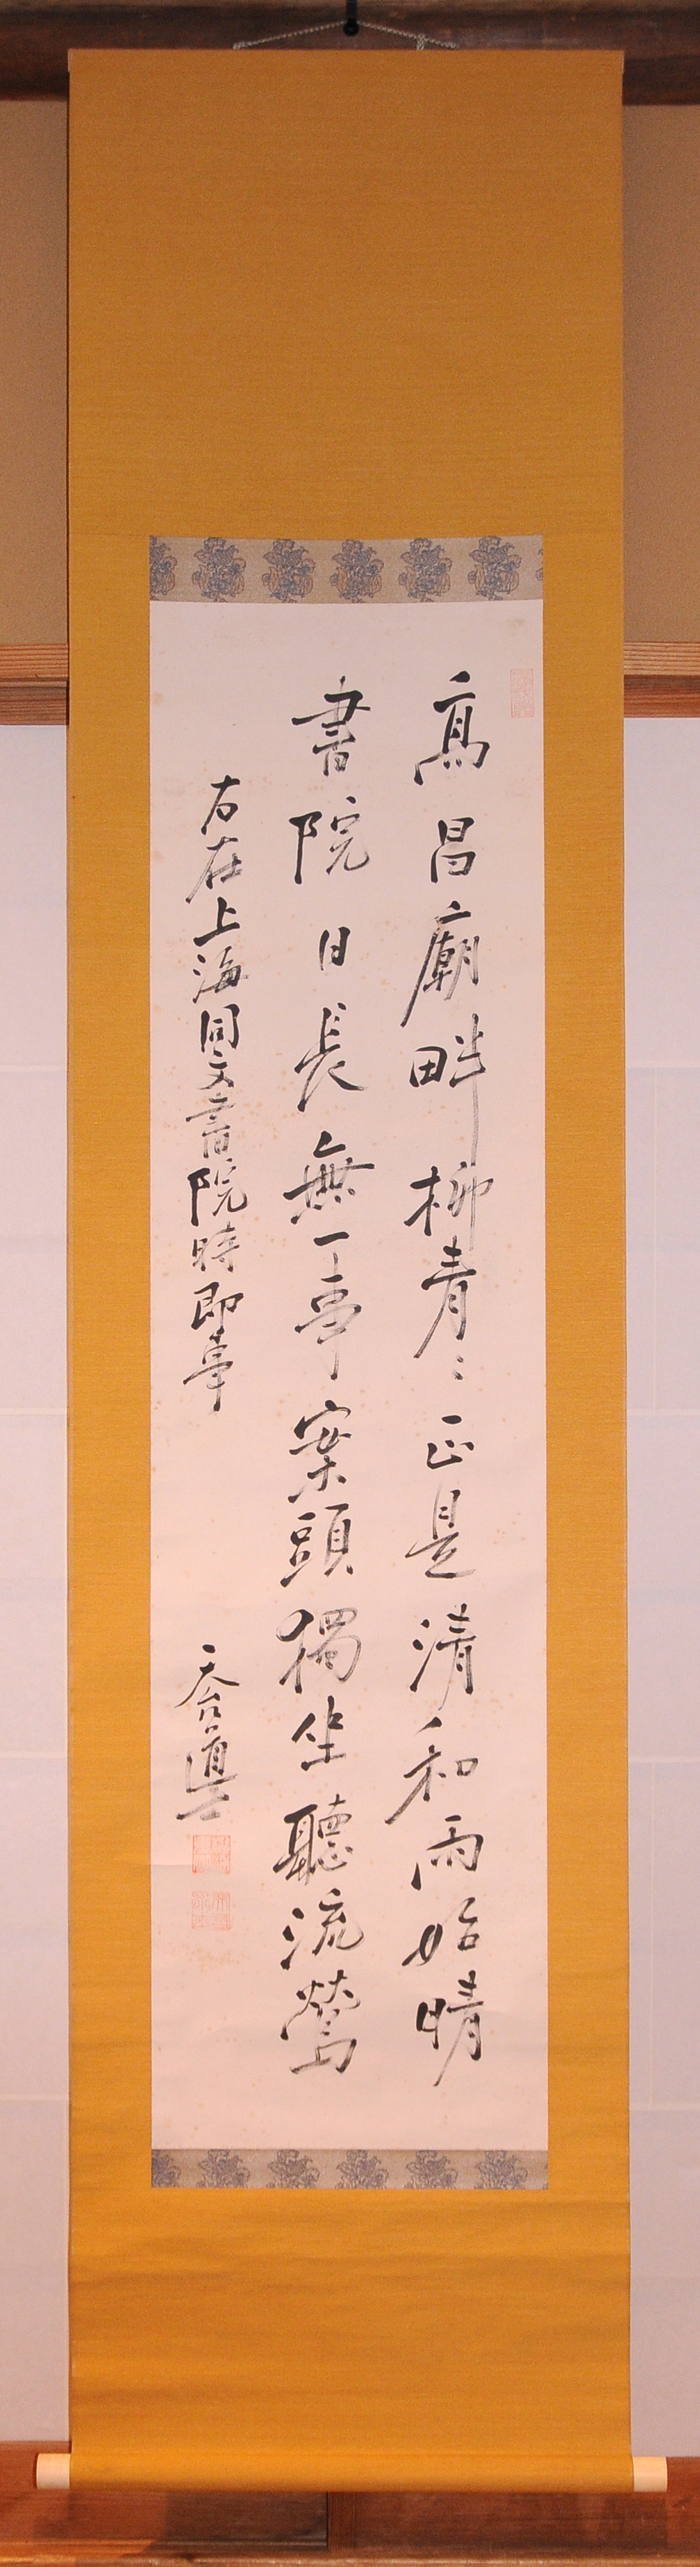 高昌廟畔柳青〻正是清和雨始晴
書院日長無一事案頭獨坐聽流鶯
右在上海同文書院時即事
天台道士